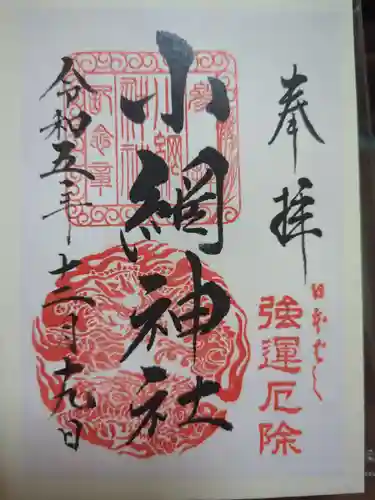 奉拝
日本ばし
強運厄除
小網神社
令和五年十二月十九日